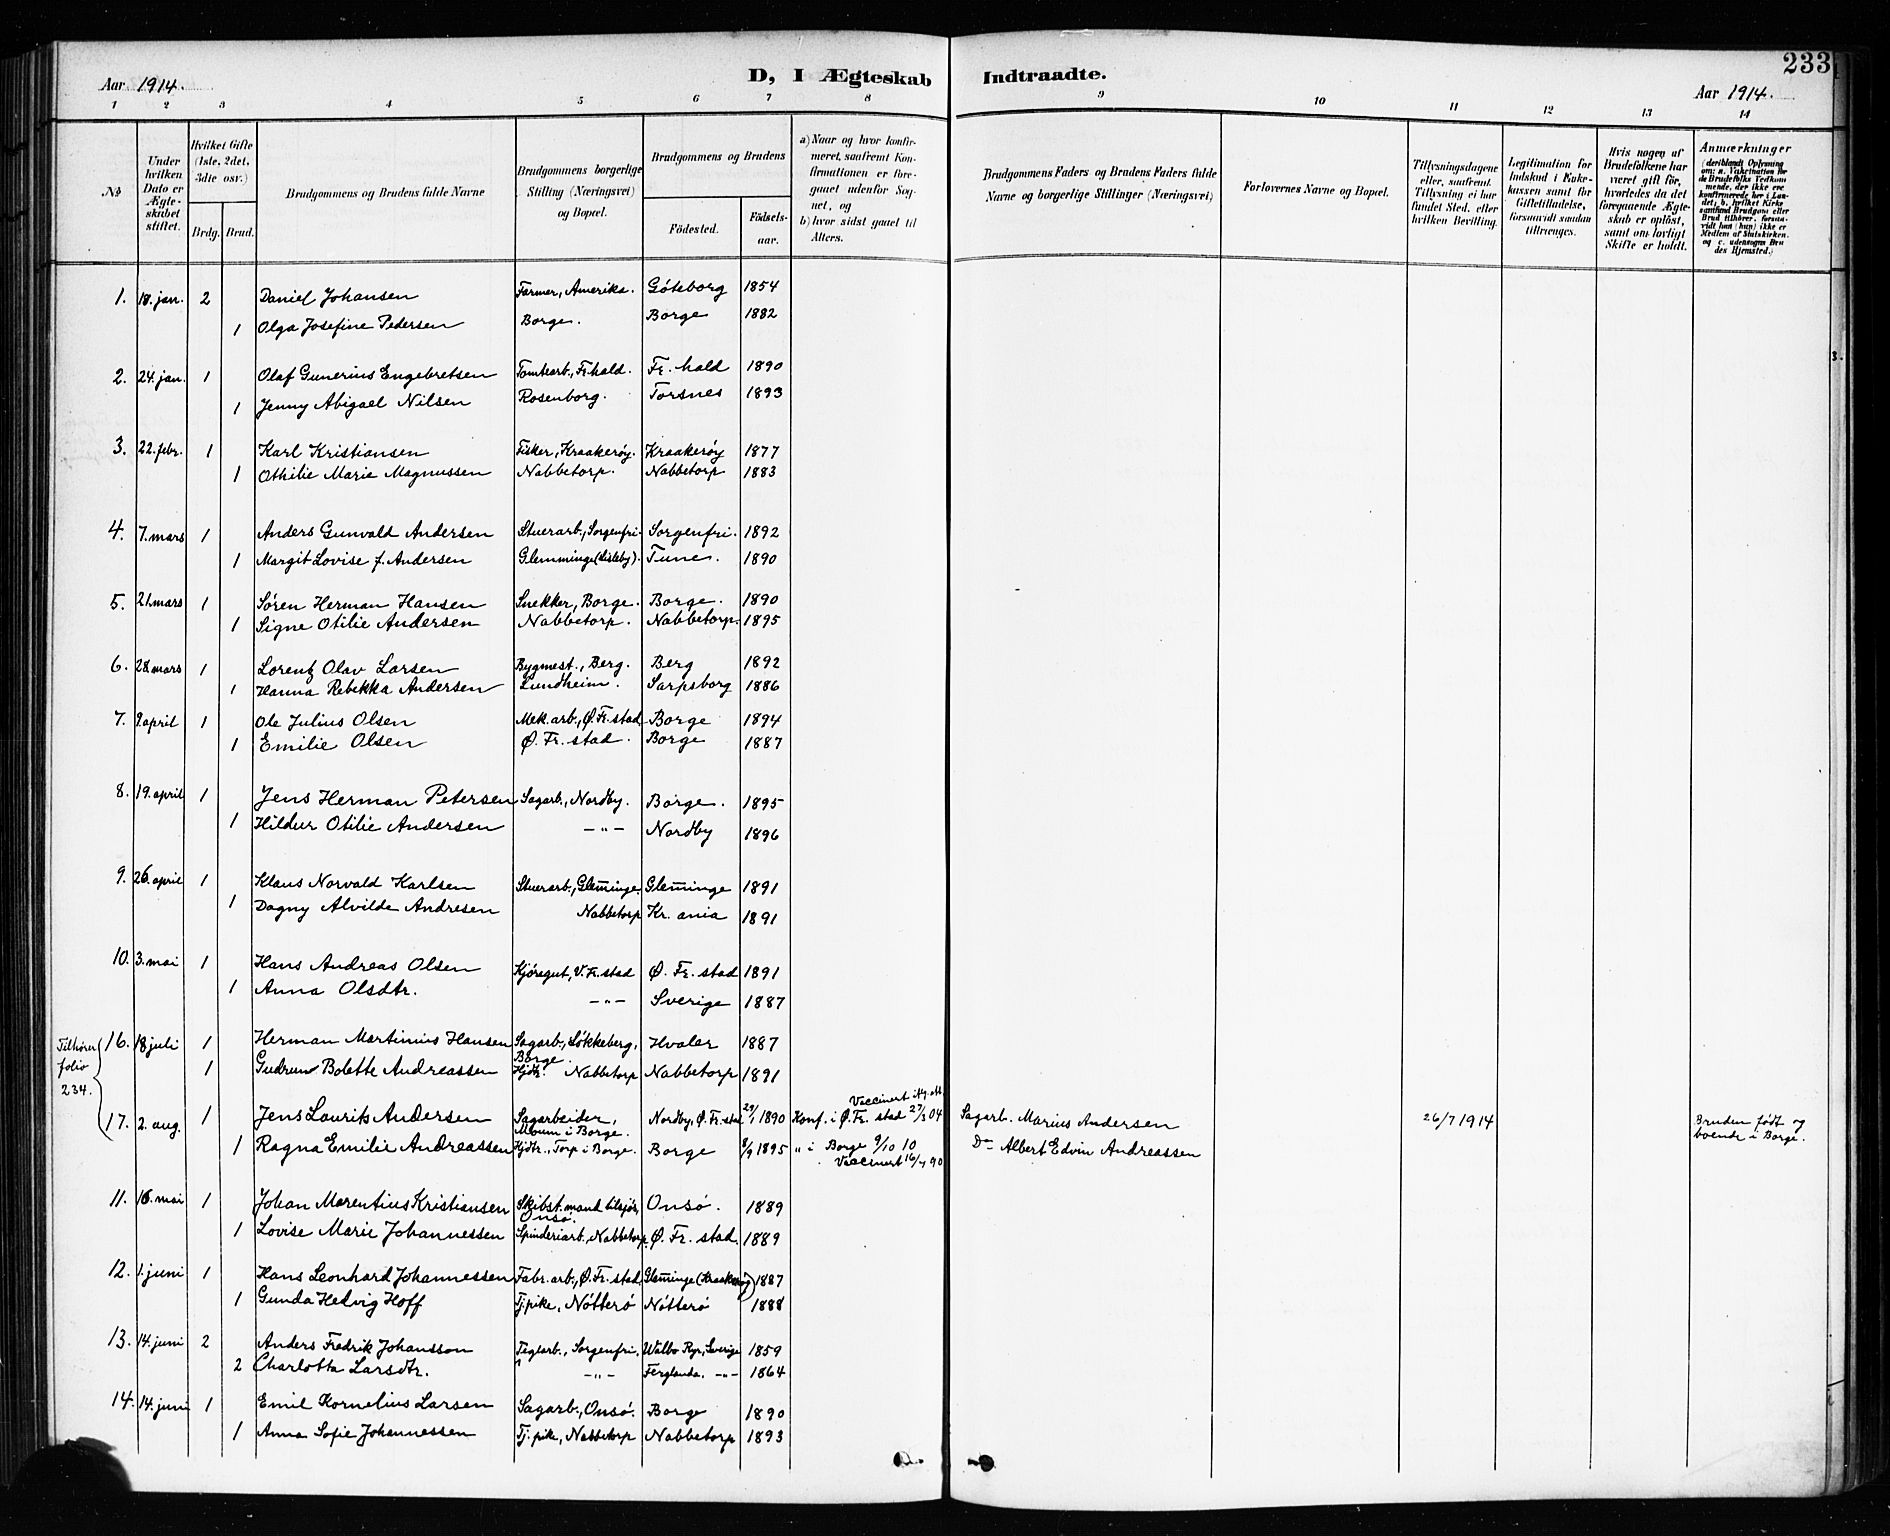 233
Aar 1914.
D, I Ægteskab Indtraadte.
Aar 1914.
1 2 3 4 5 6 7 8 9 10 11 12 13 14
No
Under hvilken Dato er Ægteskabet stiftet.
Hvilket Gifte (1ste, 2det, 3die osv.)
Brdg. Brud.
Brudgommens og Brudens fulde Navne
Brudgommens borgerlige Stilling (Næringsvei) og Bopæl.
Brudgommens og Brudens
Födested. Födsels-aar.
a) Naar og hvor konfirmeret, saafremt Konfirmationen er foregaaet udenfor Sognet, og
b) hvor sidst gaaet til Alters.
Brudgommens Faders og Brudens Faders fulde Navne og borgerlige Stillinger (Næringsvei)
Forlovernes Navne og Bopæl.
Tillysningsdagene eller, saafremt Tillysning ei har fundet Sted, efter hvilken Bevilling.
Legitimation for Indskud i Enkekassen samt for Giftetilladelse, forsaavidt saadan tiltrænges.
Hvis nogen af Brudefolkene har været gift för, hvorledes da det foregaaende Ægteskab er oplöst, samt om lovligt Skifte er holdt.
Anmærkninger
1. 18. jan. 2 Daniel Johansen Farmer, Amerika. Göteborg 1854
1 Olga Josefine Pedersen Borge. Borge 1882
2. 24. jan. 1 Olaf Gunerius Engebretsen Tomtearb., Fr.hald. Fr. hald 1890
1 Jenny Abigael Nilsen Rosenborg. Torsnes 1893
3. 22. febr. 1 Karl Kristiansen Fisker, Kraakeröy. Kraakeröy 1877
1 Othilie Marie Magnussen Nabbetorp. Nabbetorp 1883
4. 7. mars 1 Anders Gunvald Andersen Stuerarb., Sorgenfri. Sorgenfri. 1892
1 Margit Lovise f. Andersen Glemminge (Lisleby). Tune. 1890
5. 21. mars 1 Sören Herman Hansen Snekker, Borge. Borge. 1890
1 Signe Otilie Andersen Nabbetorp. Nabbetorp. 1895
6. 28. mars 1 Lorentz Olav Larsen Bygmest., Berg. Berg 1892
1 Hanna Rebekka Andersen Lundheim. Sarpsborg 1886
7. 9. april 1 Ole Julius Olsen Mek. arb., Ø. Fr. stad Borge 1894
1 Emilie Olsen Ø. Fr. stad. Borge 1887
8. 19. april 1 Jens Herman Petersen Sagarb., Nordby. Borge. 1895
1 Hildur Otilie Andersen — „ — Nordby 1896
9. 26. april 1 Klaus Norvald Karlsen Stuerarb., Glem̅inge. Glem̅inge 1891
1 Dagny Alvilde Andresen Nabbetorp Kr. ania 1891
10. 3. mai 1 Hans Andreas Olsen Kjöregut, V. Fr. stad Ø. Fr. stad 1891
1 Anna Olsdtr. — „ — Sverige 1887
Tilhörer folio 234.
16. 18 juli 1 Herman Martinius Hansen Sagarb., Lökkeberg, Borge. Hvaler 1887
1 Gudrun Bolette Andreassen Hjdtr. Nabbetorp Nabbetorp 1891
17. 2. aug. 1 Jens Laurits Andersen Sagarbeider, Moum i Borge. Nordby, Ø. Fr. stad 29/1 1890 Konf. i Ø. Fr. stad 27/3 04 Sagarb. Marius Andersen 26/7 1914 Bruden født og boende i Borge.
1 Ragna Emilie Andreassen Hjdtr., Torp i Borge. Borge 8/9 1895 „ i Borge 9/10 10 Do Albert Edvin Andreassen
Vaccinert 16/7 90
11. 16. mai 1 Johan Marentius Kristiansen Skibst.mand tilsjøs, Onsö. Onsö. 1889
1 Lovise Marie Johannessen Spinderiarb., Nabbetorp. Ø. Fr. stad. 1889
12. 1. juni 1 Hans Leonhard Johannessen Fabr. arb., Ø. Fr. stad. Glem̅inge (Kraakeröy) 1887
1 Gunda Hedvig Hoff Tj.pike, Nötterö Nötterö 1888
13. 14. juni 2 Anders Fredrik Johansson Teglarb., Sorgenfri. Walbo Ryr, Sverige 1859
2 Charlotta Larsdtr. — „ — Ferglanda. — „ — 1864
14. 14. juni 1 Emil Kornelius Larsen Sagarb., Onsö. Borge 1890
1 Anna Sofie Johannessen Tj. pike, Nabbetorp Nabbetorp 1893